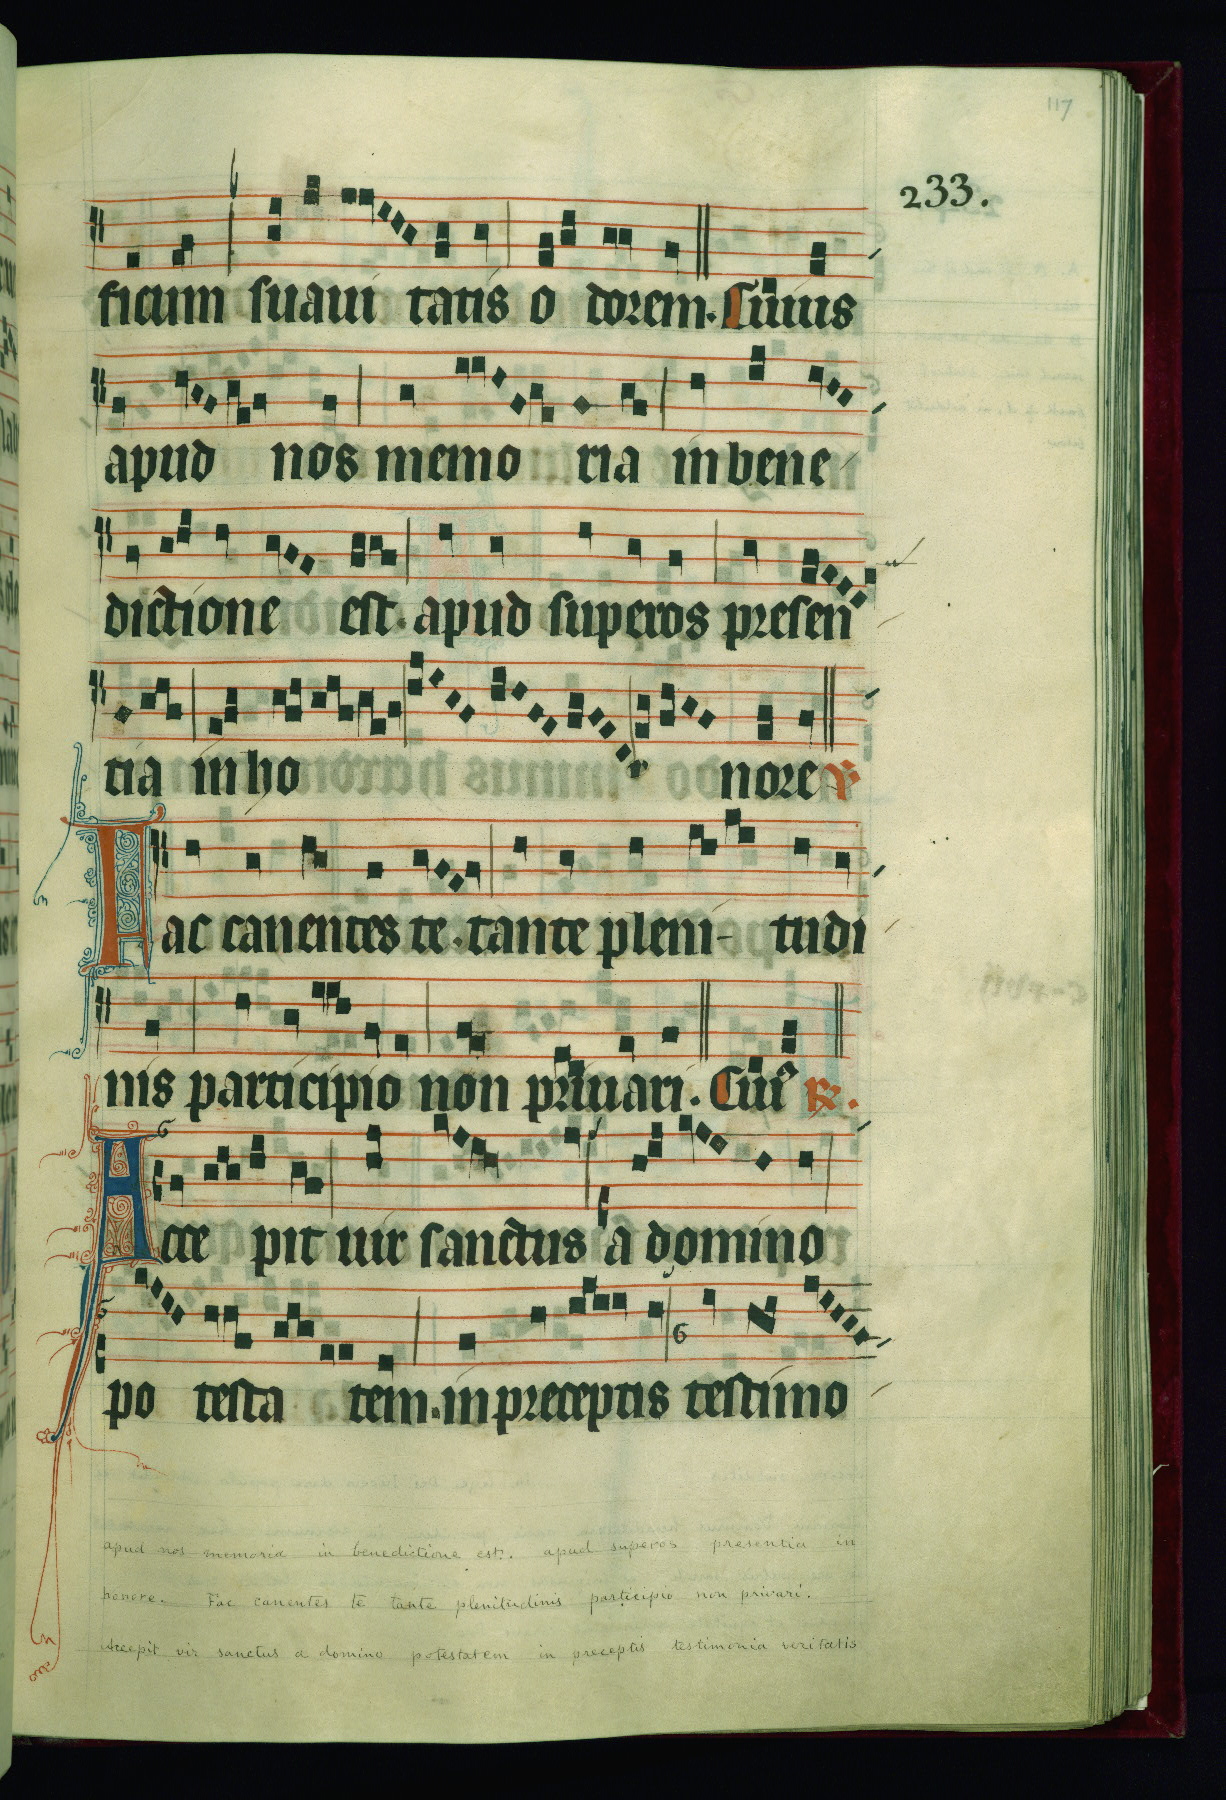 117
233.
ficum suaui tatis o dorem. Cuius
apud nos memo ria in bene
dictione est. apud superos presen
tia in ho nore ℣
Fac canentes te. tante pleni- tudi
nis participio non priuari. Cui9 ℟.
Acce pit uir sanctus a domino
po testa tem. in preceptis testimo
apud nos memoria in benedictione est. apud superos presentia in
honore. Fac canentes te tante plenitudinis participio non privari.
Accepit vir sanctus a domino potestatem in preceptis testimonia veritatis